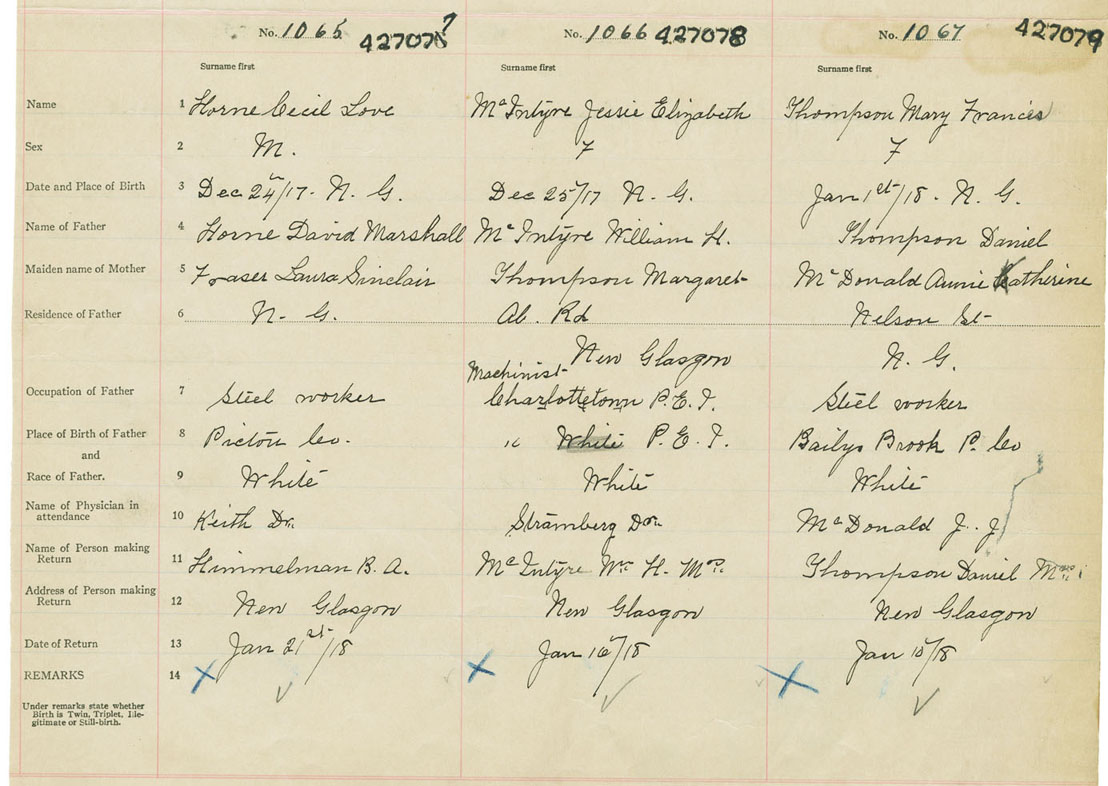 No. 1065 427077 No. 1066 427078 No. 1067 427079
Surname first Surname first Surname first
Name 1 Horne Cecil Love McIntyre Jessie Elizabeth Thompson Mary Francis
Sex 2 M. F F
Date and Place of Birth 3 Dec 24th/17. N. G. Dec 25th/17 N. G. Jan 1st/18. N. G.
Name of Father 4 Horne David Marshall McIntyre William H. Thompson Daniel
Maiden name of Mother 5 Fraser Laura Sinclair Thompson Margaret McDonald Annie Katherine
Residence of Father 6 N. G. Ab. Rd Nelson St
New Glasgow N. G.
Machinist
Occupation of Father 7 Steel worker Charlottetown P.E.I. Steel worker
Place of Birth of Father 8 Pictou Co. " White P.E.I. Bailys Brook P. Co
and
Race of Father. 9 White White White
Name of Physician in
attendance 10 Keith Dr. Stramberg Dr. McDonald J. J.
Name of Person making
Return 11 Himmelman B. A. McIntyre Wm H. Mrs. Thompson Daniel Mrs.
Address of Person making
Return 12 New Glasgow New Glasgow New Glasgow
Date of Return 13 Jan 21st/18 Jan 16th/18 Jan 15/18
REMARKS 14
Under remarks state whether
Birth is Twin, Triplet, Ille-
gitimate or Still-birth.